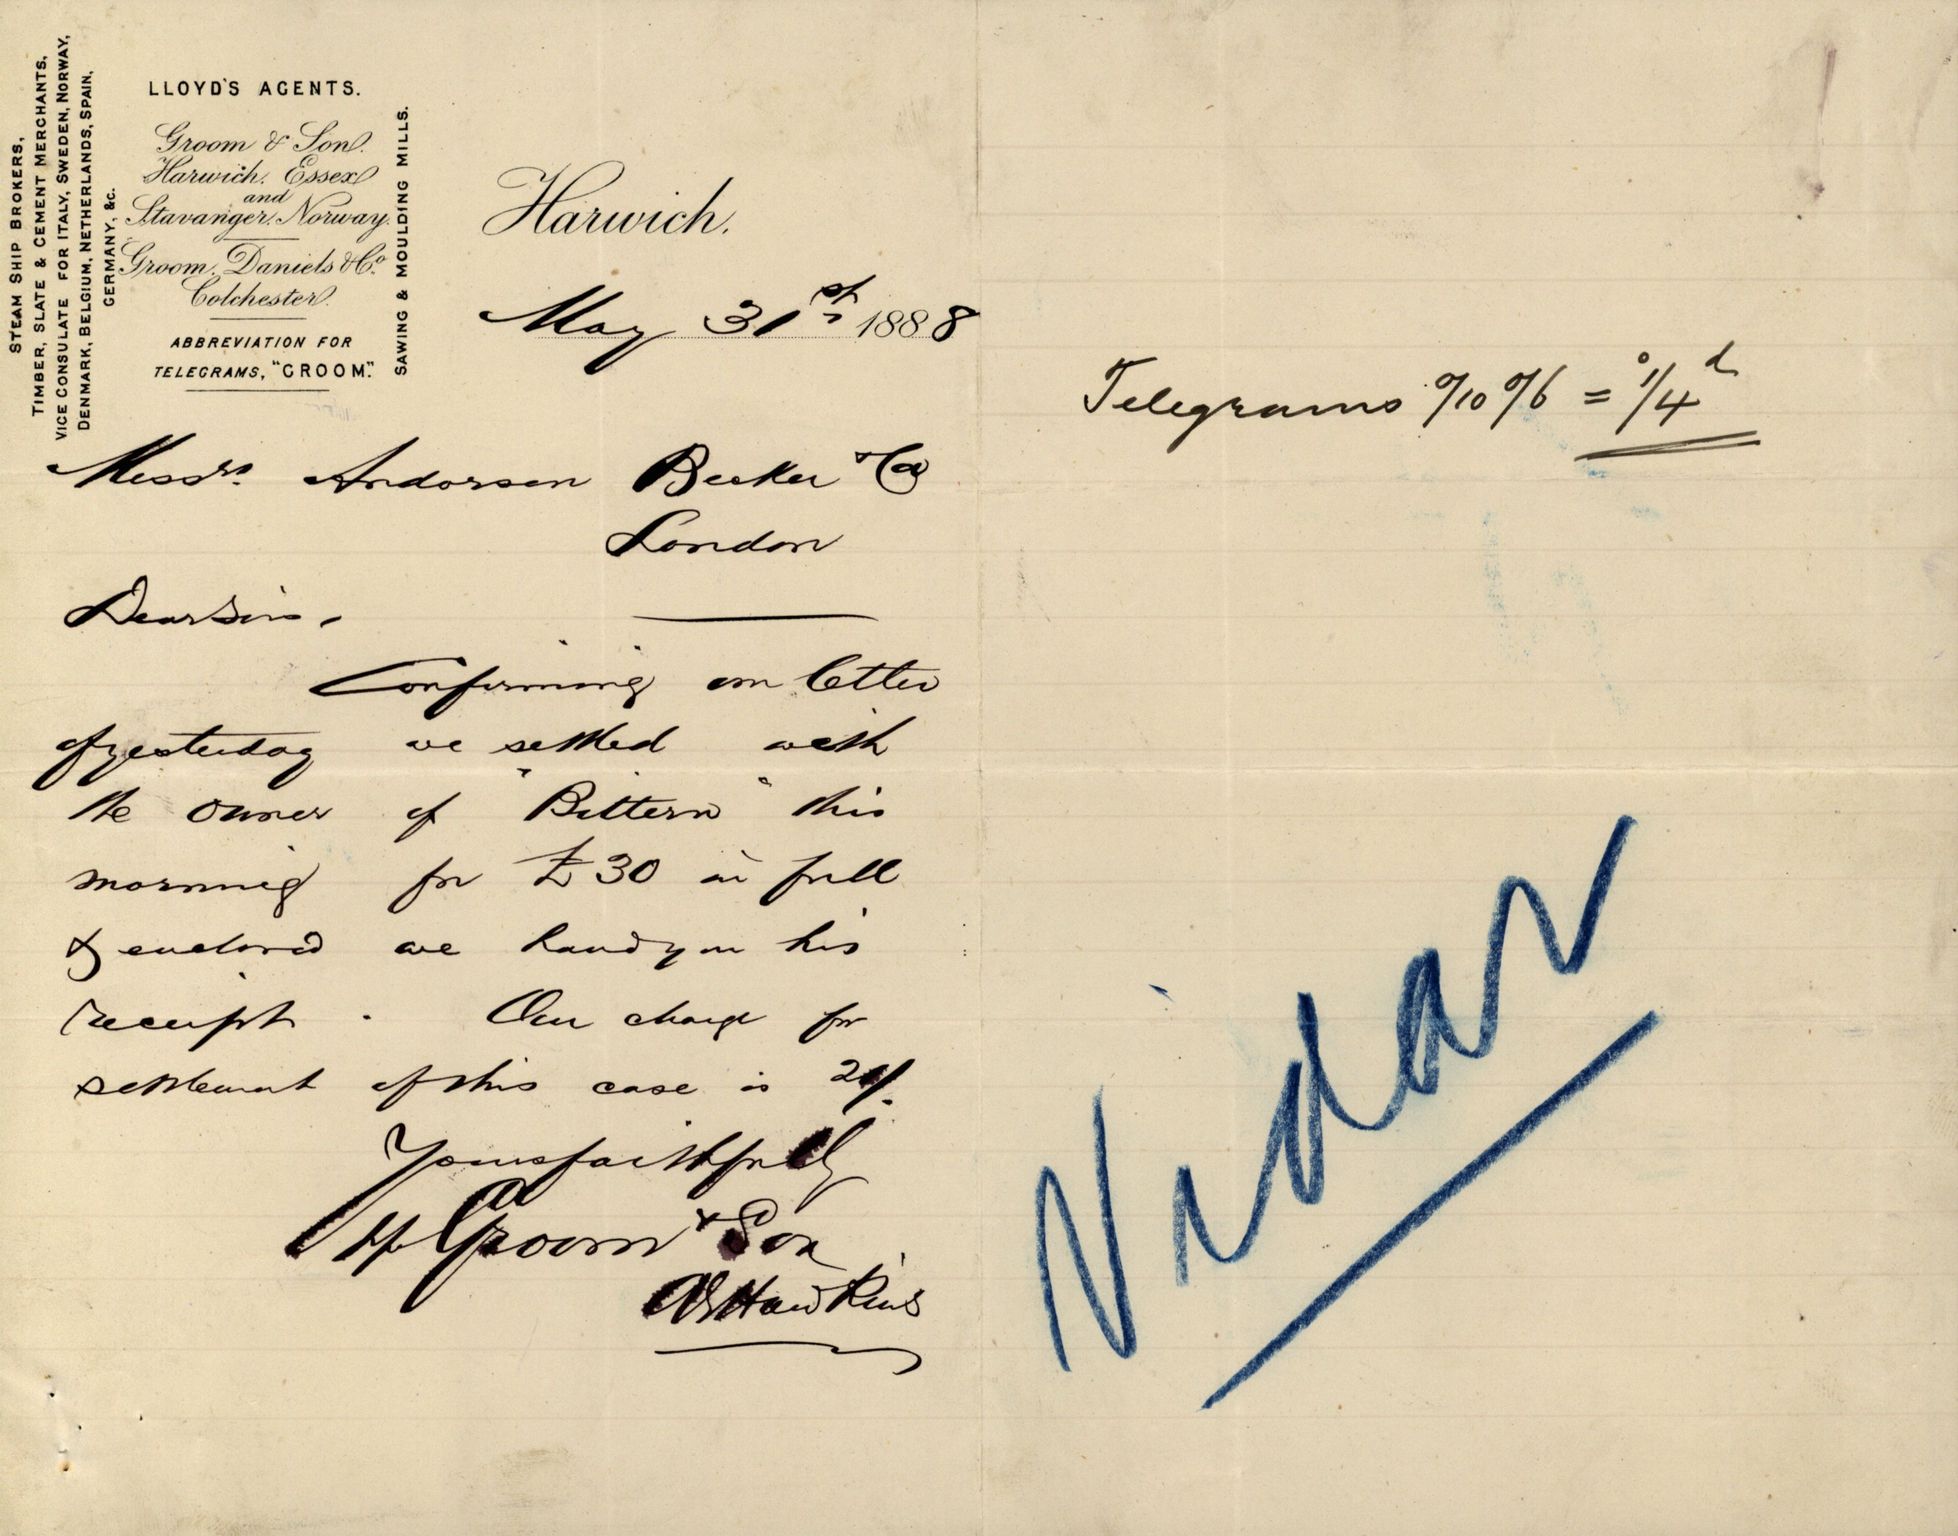 STEAM SHIP BROKERS,
TIMBER, SLATE & CEMENT MERCHANTS,
VICE CONSULATE FOR ITALY, SWEDEN, NORWAY,
DENMARK, BELGIUM, NETHERLANDS, SPAIN,
GERMANY, &c.
LLOYD'S AGENTS.
Groom & Son.
Harwich. Essex
and
Stavanger. Norway.
Groom. Daniels & Co.
Colchester.
ABBREVIATION FOR
TELEGRAMS, "GROOM".
SAWING & MOULDING MILLS.
Harwich.
May 31st 1888
Messrs. Andorsen Becker & Co
London
Dear Sirs,
Confirming our letter
of yesterday we settled with
the owner of "Bittern" this
morning for £30 in full
& enclosed we hand you his
receipt. Our charge for
settlement of this case is
Yours faithfully
pp Groom & Son
Hawkins
Telegrams 0/10 0/6 = 1/4d
Vidar